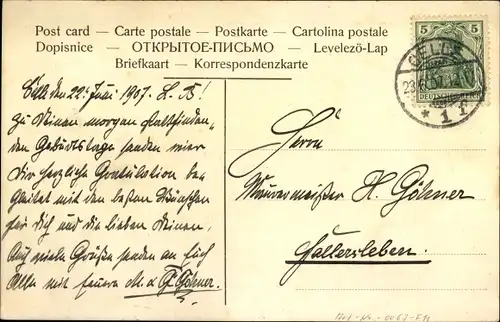 Post card — Carte postale — Postkarte — Cartolina postale
Dopisnice — ОТКРЫТОЕ-ПИСЬМО — Levelezö-Lap
Briefkaart — Korrespondenzkarte
5 5
DEUTSCHES REICH
CELLE
23.6.07. 12
* 1 f
Celle den 22. Juni 1907. L. B!
Zu Deinem morgen stattfindenden
Geburtstage senden wir
Dir herzliche Gratulation
mit den besten Wünschen
für Dich und die lieben Deinen,
Auch viele Grüße senden an Euch
Alle mit
G. Göhner.
Herrn
Maurermeister H. Göhner
Fallersleben.